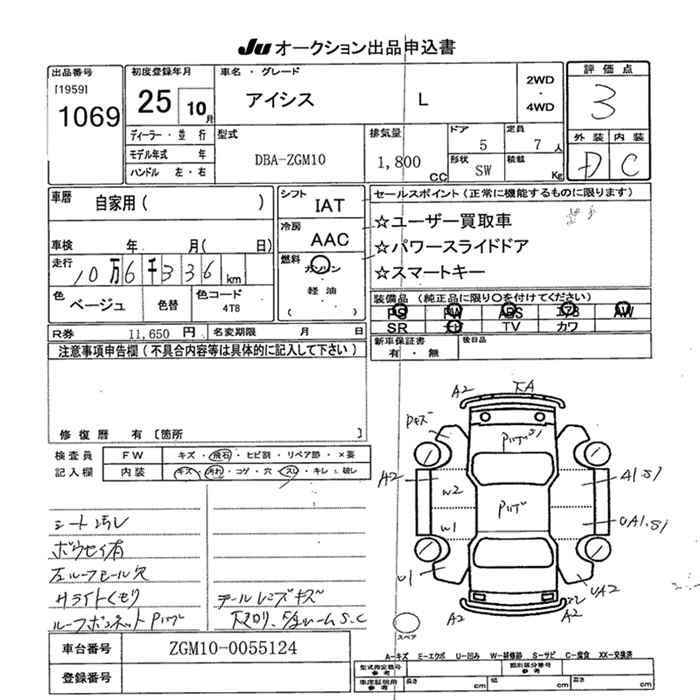 Ju オークション出品申込書
出品番号
[1959]
1069
初度登録年月
25 10月
ディーラー・並行
モデル年式 年
ハンドル 左・右
車名・グレード
アイシス L
2WD
・
4WD
型式
DBA-ZGM10
排気量
1,800 CC
ドア 5
定員 7人
形状 SW
積載 Kg
評価点
3
外装 内装
D C
車歴
自家用( )
車検 年 月( 日)
走行
10万6千336km
色
ベージュ
色替
色コード
4T8
シフト
IAT
冷房
AAC
燃料
ガソリン
・
軽油
( )
セールスポイント(正常に機能するものに限ります)
☆ユーザー買取車
☆パワースライドドア
☆スマートキー
装備品 (純正品に限り○を付けてください)
PS PW ABS エアB AW
SR ナビ TV カワ
R券 11,650 円
名変期限 月 日
新車保証書
有・無
後日品
注意事項申告欄(不具合内容等は具体的に記入して下さい)
修復歴 有 〔箇所 〕
検査員
記入欄
FW キズ・飛石・ヒビ割・リペア跡・×要
内装 キズ・汚れ・コゲ・穴・スレ・キレ・破レ
シート汚レ
ボウセイ有
左ルーフモール欠
サライトくもり
ルーフボンネットPリップ
テールレンズキズ
車台番号 ZGM10-0055124
登録番号
A2
A2
W2
W1
U1
A2
A1.S1
UA1.S1
UA2
A2
スペア
A-キズ E-エクボ U-凹み W-補修跡 S-サビ C-腐食 XX-交換済
型式指定番号
参考
類別区分番号
参考
車庫証明用
参考
長さ cm
幅 cm
高さ cm